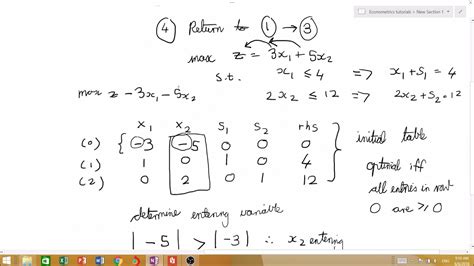 Econometrics tutorials > New Section 1
④ Return to ① → ③
max z = 3x₁ + 5x₂
s.t. x₁ ≤ 4 => x₁ + S₁ = 4
max z - 3x₁ - 5x₂ 2x₂ ≤ 12 => 2x₂ + S₂ = 12
x₁ x₂ S₁ S₂ rhs
(0) { -3 -5 0 0 0 initial table
(1) 1 0 1 0 4 optimal iff
(2) 0 2 0 1 12 all entries in row
0 are ≥ 0
determine entering variable
|-5| > |-3| ∴ x₂ entering